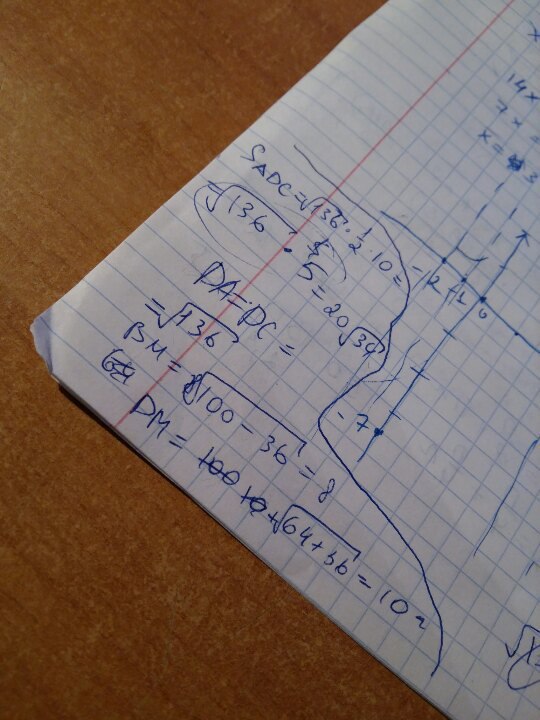 S ADC = √136 · 1/2 · 10 =
= √136 · 5 = 20√34
DA = DC =
= √136
BM = √100 - 36 = 8
DM = √64 + 36 = 10
14x
7x =
x =
-2
-1
0
-7